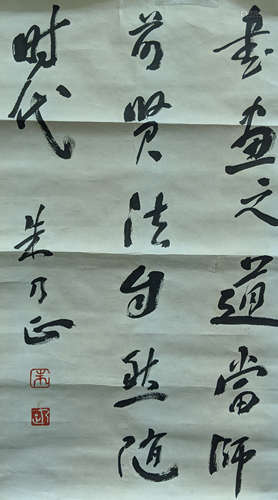 书画之道当师
前贤法自然随
时代
朱乃正